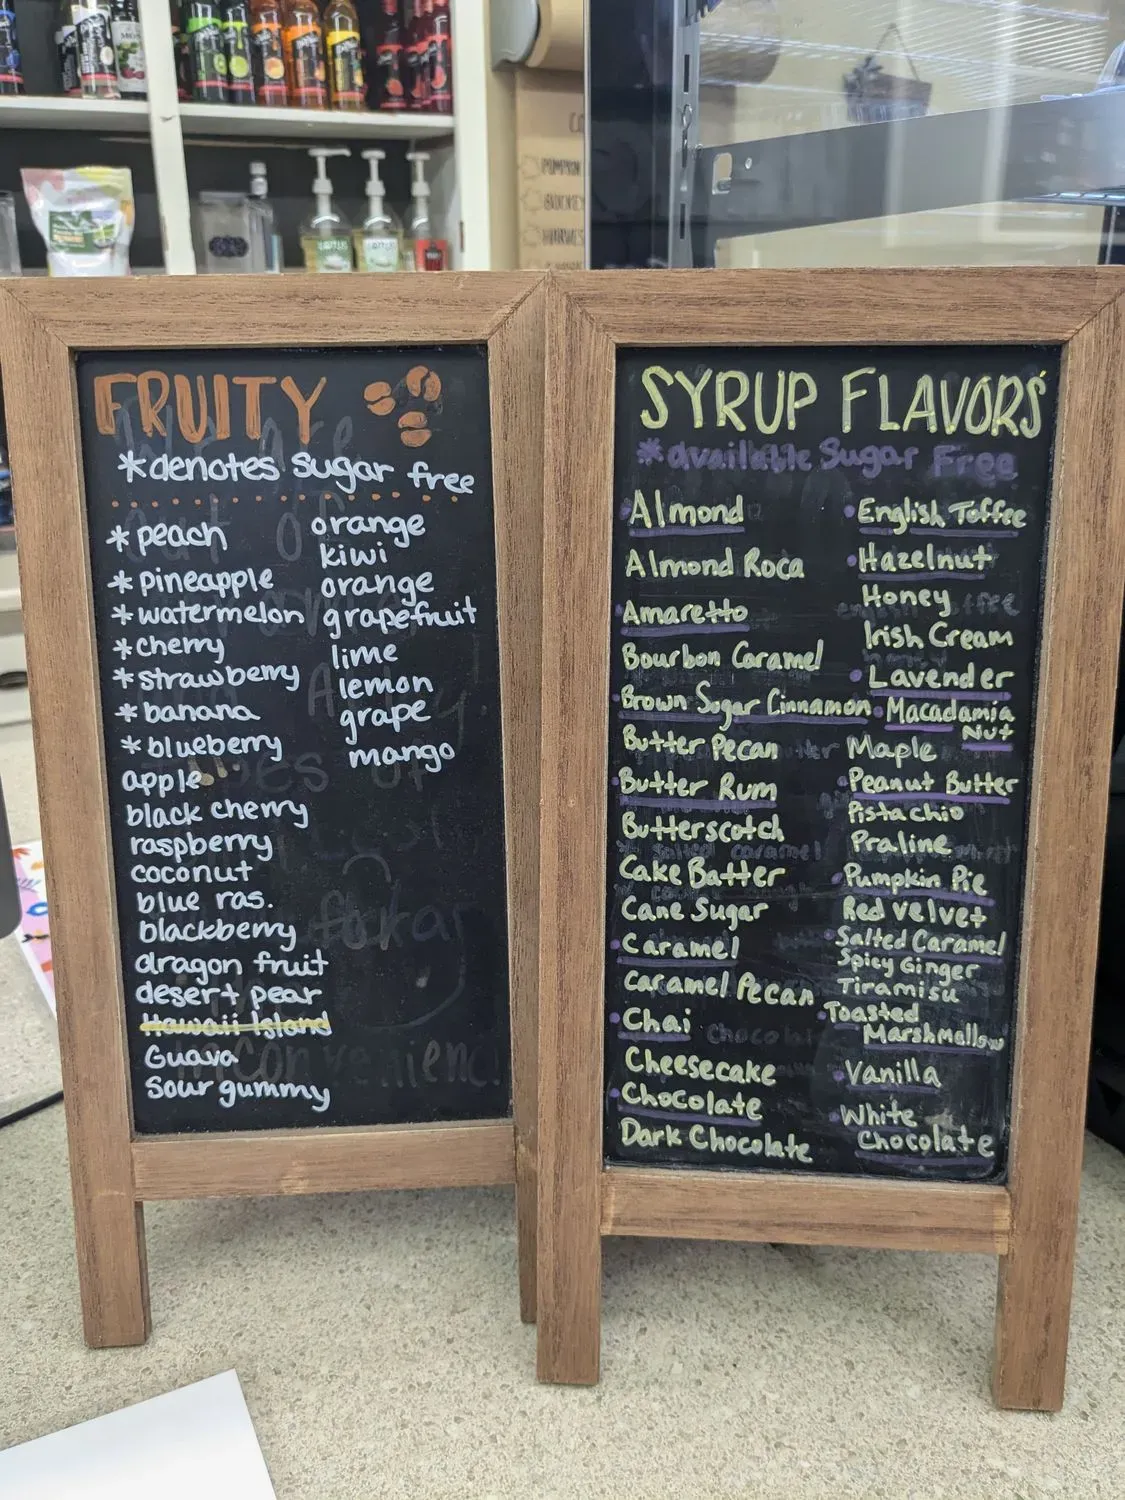 FRUITY
*denotes sugar free
*peach
*pineapple
*watermelon
*cherry
*strawberry
*banana
*blueberry
apple
black cherry
raspberry
coconut
blue ras.
blackberry
dragon fruit
desert pear
Hawaii Island
Guava
Sour gummy
orange
kiwi
orange
grapefruit
lime
lemon
grape
mango
SYRUP FLAVORS
*available Sugar Free
Almond
Almond Roca
Amaretto
Bourbon Caramel
Brown Sugar Cinnamon
Butter Pecan
Butter Rum
Butterscotch
Cake Batter
Cane Sugar
Caramel
Caramel Pecan
Chai
Cheesecake
Chocolate
Dark Chocolate
English Toffee
Hazelnut
Honey
Irish Cream
Lavender
Macadamia
Nut
Maple
Peanut Butter
Pistachio
Praline
Pumpkin Pie
Red velvet
Salted Caramel
Spicy Ginger
Tiramisu
Toasted
Marshmallow
Vanilla
White
Chocolate
PUMPKIN